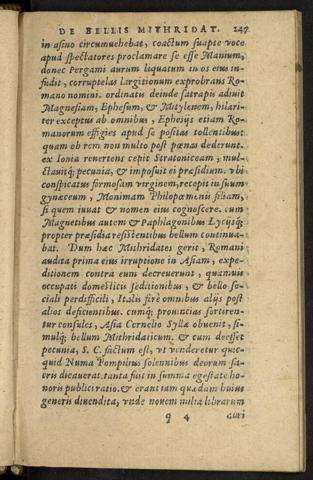 DE BELLIS MITHRIDAT. 247
in asino circumuehebat, coactum suapte voce
apud spectatores proclamare se esse Manium,
donec Pergami aurum liquatum in os eius in-
fudit, corruptelas largitionum exprobrans Ro-
mano nomini. ordinatis deinde satrapis adiuit
Magnesiam, Ephesum, & Mitylenem, hilari-
ter exceptus ab omnibus, Ephesijs etiam Ro-
manorum effigies apud se positas tollentibus:
quam ob rem non multo post pœnas dederunt.
ex Ionia reuertens cepit Stratoniceam; mul-
ctauitq; pecunia, & imposuit ei præsidium. vbi
conspicatus formosam virginem, recepit in suum
gynæceum, Monimam Philopœmenis filiam,
si quem iuuat & nomen eius cognoscere. cum
Magnetibus autem & Paphlagonibus Lycijsq;
propter præsidia resistentibus bellum continua-
bat. Dum hæc Mithridates gerit, Romani
audita prima eius irruptione in Asiam, expe-
ditionem contra eum decreuerunt, quamuis
occupati domesticis seditionibus, & bello so-
ciali perdifficili, Italis ferè omnibus alijs post
alios deficientibus. cumq; prouincias sortiren-
tur consules, Asia Cornelio Syllæ obuenit, si-
mulq; bellum Mithridaticum. & cum deesset
pecunia, S. C. factum est, vt venderetur quic-
quid Numa Pompilius solennibus deorum sa-
cris dicauerat. tanta fuit in summa egestate ho-
noris publici ratio. & erant iam quædam huius
generis diuendita, vnde nouem milia librarum
q 4 auri